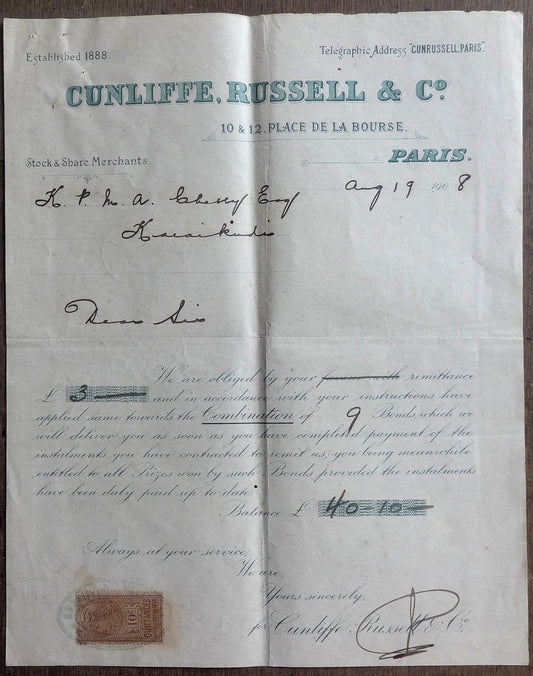 Established 1888.
Telegraphic Address "CUNRUSSELL, PARIS".
CUNLIFFE, RUSSELL & Co.
10 & 12, PLACE DE LA BOURSE,
Stock & Share Merchants
PARIS.
K. P. M. A. Chetty Esq
Aug 19 1908
Karaikudi
Dear Sir
We are obliged by your remittance
£ 3 and in accordance with your instructions have
applied same towards the Combination of 9 Bonds which we
will deliver you as soon as you have completed payment of the
instalments you have contracted to remit us; you being meanwhile
entitled to all Prizes won by such Bonds provided the instalments
have been duly paid up to date.
Balance £ 40-10-
Always at your service,
We are,
Yours sincerely,
10c QUITTANCES
for Cunliffe, Russell & Co.